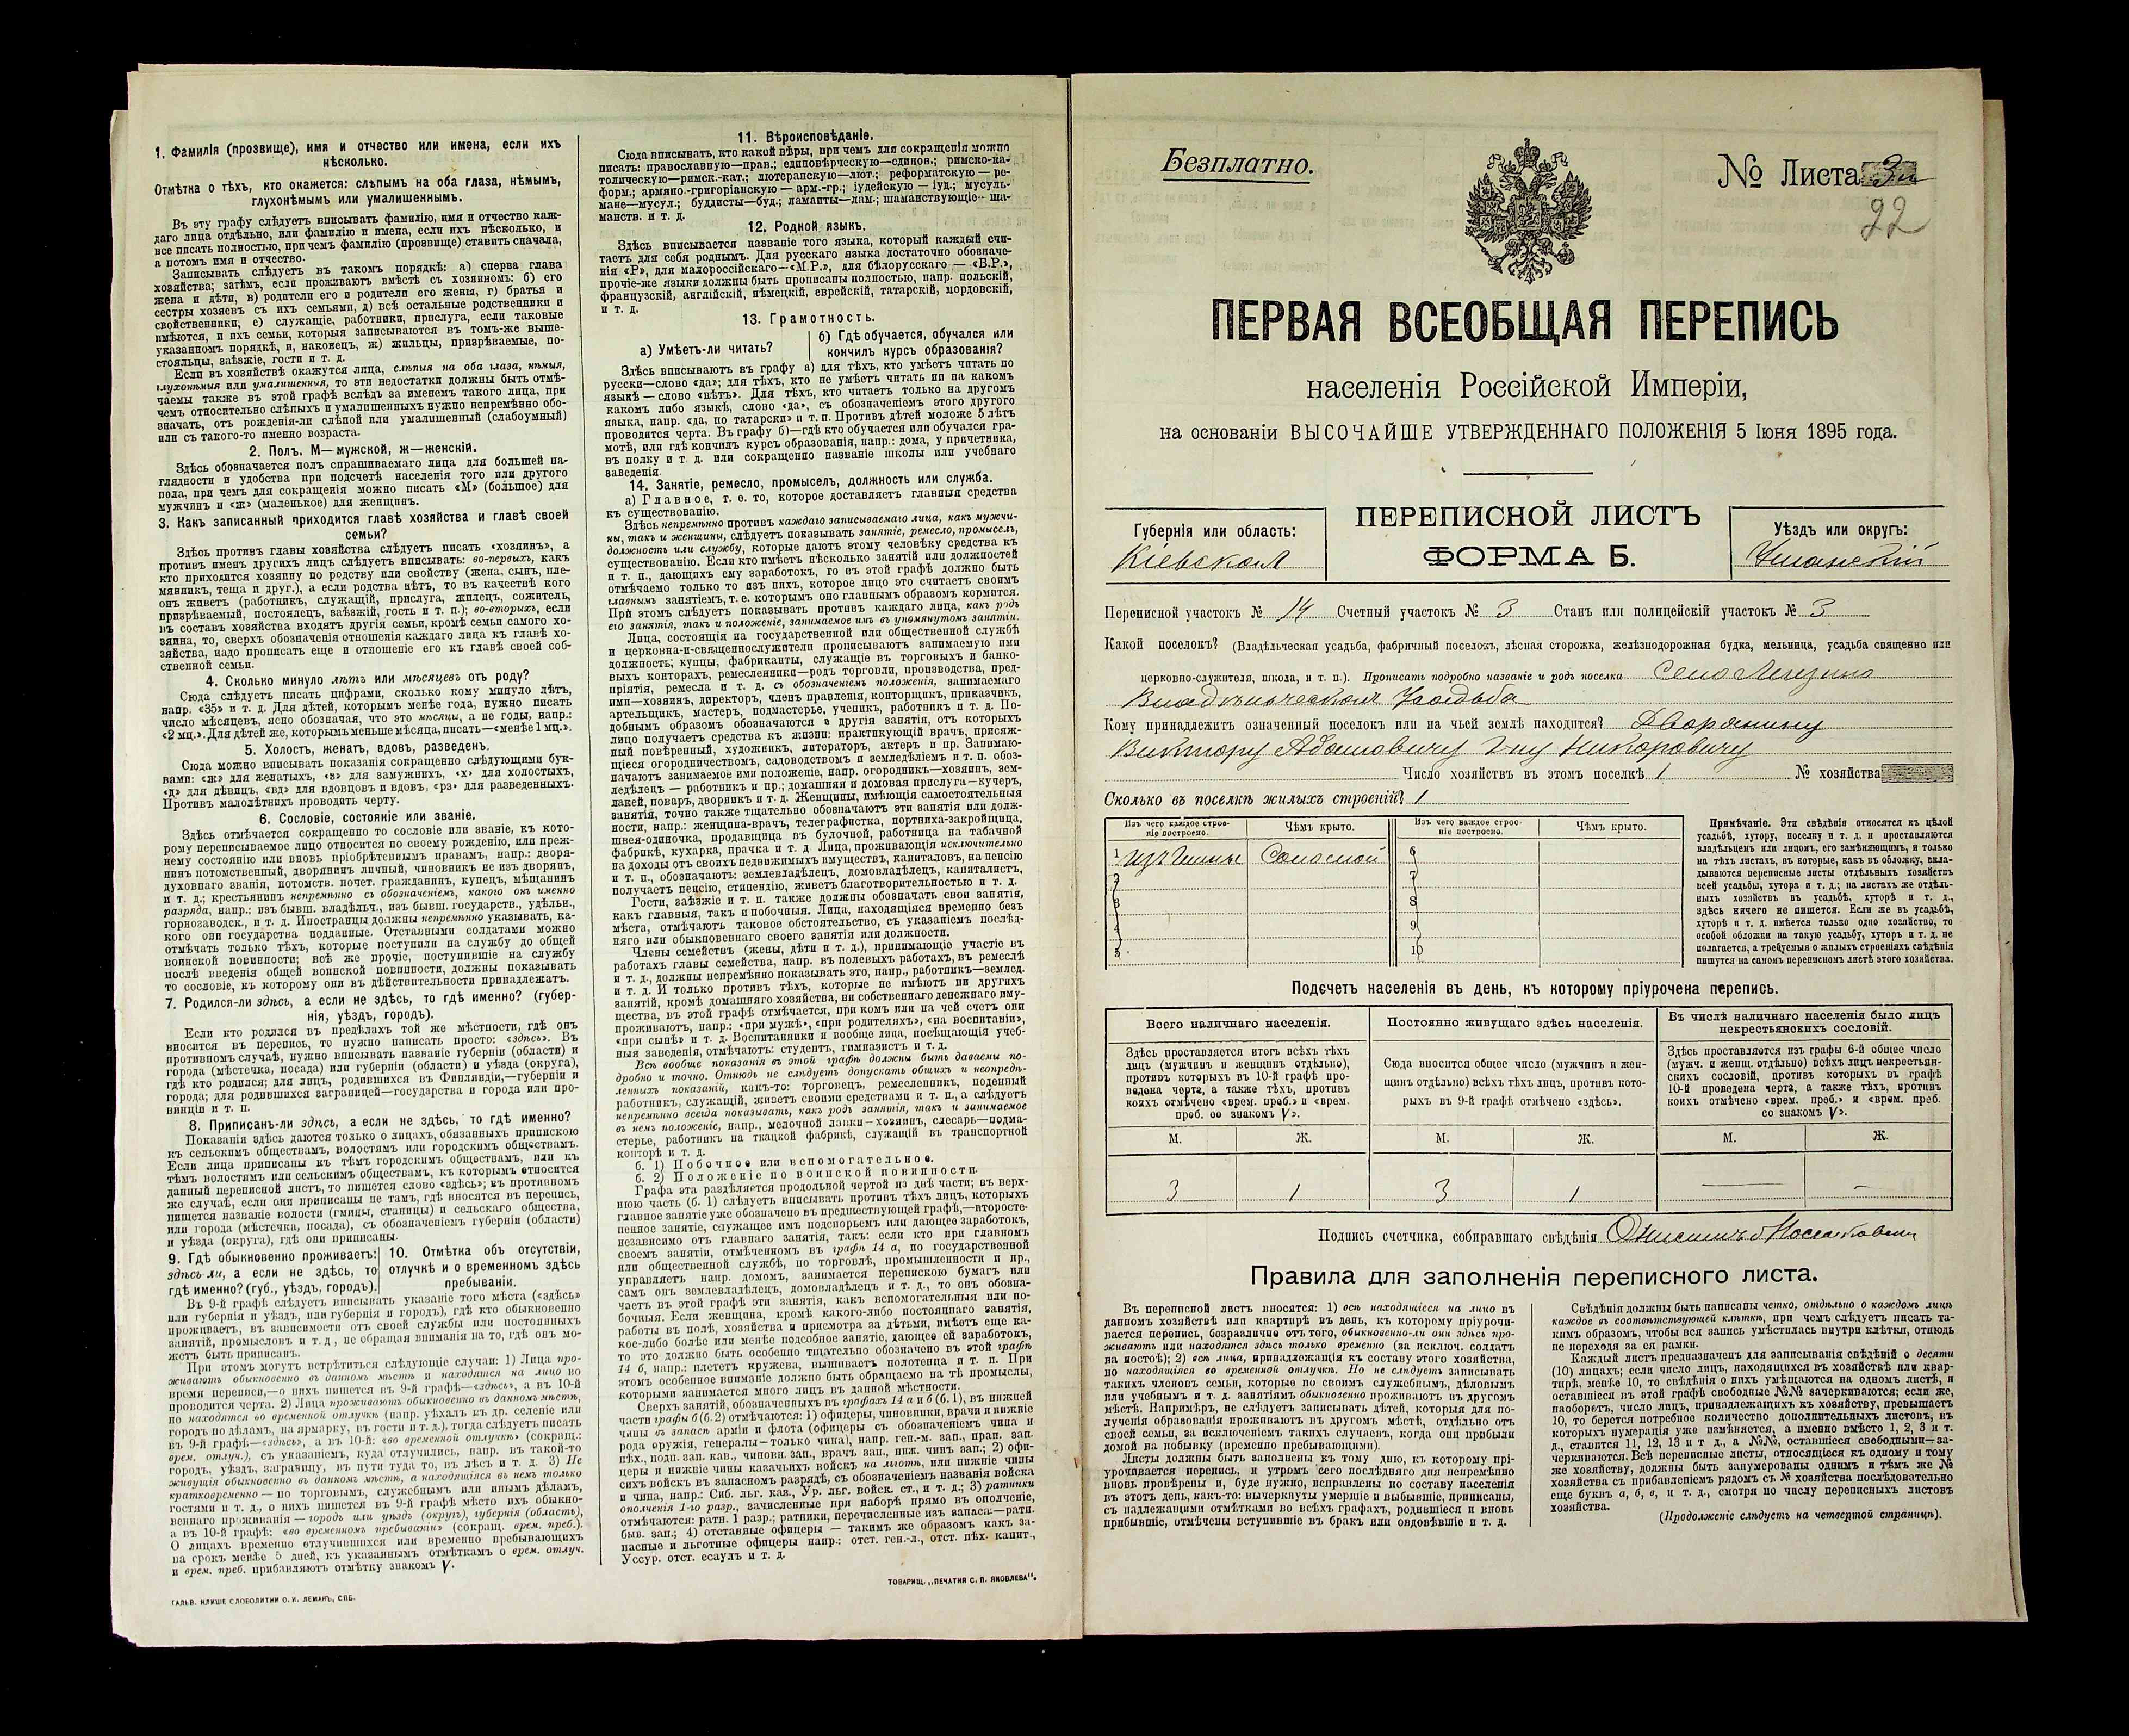 1. Фамилія (прозвище), имя и отчество или имена, если ихъ
нѣсколько.
Отмѣтка о тѣхъ, кто окажется: слѣпымъ на оба глаза, нѣмымъ,
глухонѣмымъ или умалишеннымъ.
Въ эту графу слѣдуетъ вписывать фамилію, имя и отчество каж-
даго лица отдѣльно, или фамилію и имена, если ихъ нѣсколько, и
все писать полностью, при чемъ фамилію (прозвище) ставить сначала,
а потомъ имя и отчество.
Записывать слѣдуетъ въ такомъ порядкѣ: а) сперва глава
хозяйства; затѣмъ, если проживаютъ вмѣстѣ съ хозяиномъ: б) его
жена и дѣти, в) родители его и родители его жены, г) братья и
сестры хозяевъ съ ихъ семьями, д) всѣ остальные родственники и
свойственники, е) служащіе, работники, прислуга, если таковые
имѣются, и ихъ семьи, которыя записываются въ томъ-же выше-
указанномъ порядкѣ, и, наконецъ, ж) жильцы, призрѣваемые, по-
стояльцы, заѣзжіе, гости и т. д.
Если въ хозяйствѣ окажутся лица, слѣпыя на оба глаза, нѣмыя,
глухонѣмыя или умалишенныя, то эти недостатки должны быть отмѣ-
чаемы также въ этой графѣ вслѣдъ за именемъ такого лица, при
чемъ относительно слѣпыхъ и умалишенныхъ нужно непремѣнно обо-
значать, отъ рожденія-ли слѣпой или умалишенный (слабоумный)
или съ такого-то именно возраста.
2. Полъ. М—мужской, ж—женскій.
Здѣсь обозначается полъ спрашиваемаго лица для большей на-
глядности и удобства при подсчетѣ населенія того или другого
пола, при чемъ для сокращенія можно писать «М» (большое) для
мужчинъ и «ж» (маленькое) для женщинъ.
3. Какъ записанный приходится главѣ хозяйства и главѣ своей
семьи?
Здѣсь противъ главы хозяйства слѣдуетъ писать «хозяинъ», а
противъ именъ другихъ лицъ слѣдуетъ вписывать: во-первыхъ, какъ
кто приходится хозяину по родству или свойству (жена, сынъ, пле-
мянникъ, теща и друг.), а если родства нѣтъ, то въ качествѣ кого
онъ живетъ (работникъ, служащій, прислуга, жилецъ, сожитель,
призрѣваемый, постоялецъ, заѣзжій, гость и т. п.); во-вторыхъ, если
въ составъ хозяйства входятъ другія семьи, кромѣ семьи самого хо-
зяина, то, сверхъ обозначенія отношенія каждаго лица къ главѣ хо-
зяйства, надо прописать еще и отношеніе его къ главѣ своей соб-
ственной семьи.
4. Сколько минуло лѣтъ или мѣсяцевъ отъ роду?
Сюда слѣдуетъ писать цифрами, сколько кому минуло лѣтъ,
напр. «35» и т. д. Для дѣтей, которымъ менѣе года, нужно писать
число мѣсяцевъ, ясно обозначая, что это мѣсяцы, а не годы, напр.:
«2 мц.». Для дѣтей же, которымъ меньше мѣсяца, писать—«менѣе 1 мц.».
5. Холостъ, женатъ, вдовъ, разведенъ.
Сюда можно вписывать показанія сокращенно слѣдующими бук-
вами: «ж» для женатыхъ, «з» для замужнихъ, «х» для холостыхъ,
«д» для дѣвицъ, «вд» для вдовцовъ и вдовъ, «рз» для разведенныхъ.
Противъ малолѣтнихъ проводить черту.
6. Сословіе, состояніе или званіе.
Здѣсь отмѣчается сокращенно то сословіе или званіе, къ кото-
рому переписываемое лицо относится по своему рожденію, или преж-
нему состоянію или вновь пріобрѣтеннымъ правамъ, напр.: дворя-
нинъ потомственный, дворянинъ личный, чиновникъ не изъ дворянъ,
духовнаго званія, потомств. почет. гражданинъ, купецъ, мѣщанинъ
и т. д.; крестьянинъ непремѣнно съ обозначеніемъ, какого онъ именно
разряда, напр.: изъ бывш. владѣльч., изъ бывш. государств., удѣльн.,
горнозаводск., и т. д. Иностранцы должны непремѣнно указывать, ка-
кого они государства подданные. Отставными солдатами можно
отмѣчать только тѣхъ, которые поступили на службу до общей
воинской повинности; всѣ же прочіе, поступившіе на службу
послѣ введенія общей воинской повинности, должны показывать
то сословіе, къ которому они въ дѣйствительности принадлежатъ.
7. Родился-ли здѣсь, а если не здѣсь, то гдѣ именно? (губер-
нія, уѣздъ, городъ).
Если кто родился въ предѣлахъ той же мѣстности, гдѣ онъ
вносится въ перепись, то нужно написать просто: «здѣсь». Въ
противномъ случаѣ, нужно вписывать названіе губерніи (области) и
города (мѣстечка, посада) или губерніи (области) и уѣзда (округа),
гдѣ кто родился; для лицъ, родившихся въ Финляндіи,—губерніи и
города; для родившихся заграницей—государства и города или про-
винціи и т. п.
8. Приписанъ-ли здѣсь, а если не здѣсь, то гдѣ именно?
Показанія здѣсь даются только о лицахъ, обязанныхъ припискою
къ сельскимъ обществамъ, волостямъ или городскимъ обществамъ.
Если лица приписаны къ тѣмъ городскимъ обществамъ, или къ
тѣмъ волостямъ или сельскимъ обществамъ, къ которымъ относится
данный переписной листъ, то пишется слово «здѣсь»; въ противномъ
же случаѣ, если они приписаны не тамъ, гдѣ вносятся въ перепись,
пишется названіе волости (гмины, станицы) и сельскаго общества,
или города (мѣстечка, посада), съ обозначеніемъ губерніи (области)
и уѣзда (округа), гдѣ они приписаны.
9. Гдѣ обыкновенно проживаетъ:
здѣсь-ли, а если не здѣсь, то
гдѣ именно? (губ., уѣздъ, городъ).
10. Отмѣтка объ отсутствіи,
отлучкѣ и о временномъ здѣсь
пребываніи.
Въ 9-й графѣ слѣдуетъ вписывать указаніе того мѣста («здѣсь»
или губернія и уѣздъ, или губернія и городъ), гдѣ кто обыкновенно
проживаетъ, въ зависимости отъ своей службы или постоянныхъ
занятій, промысловъ и т. д., не обращая вниманія на то, гдѣ онъ мо-
жетъ быть приписанъ.
При этомъ могутъ встрѣтиться слѣдующіе случаи: 1) Лица про-
живаютъ обыкновенно въ данномъ мѣстѣ и находятся на лицо во
время переписи,—о нихъ пишется въ 9-й графѣ—«здѣсь», а въ 10-й
проводится черта. 2) Лица проживаютъ обыкновенно въ данномъ мѣстѣ,
но находятся во временной отлучкѣ (напр. уѣхалъ въ др. селеніе или
городъ по дѣламъ, на ярмарку, въ гости и т. д.), тогда слѣдуетъ писать
въ 9-й графѣ—«здѣсь», а въ 10-й: «во временной отлучкѣ» (сокращ.:
врем. отлуч.), съ указаніемъ, куда отлучились, напр. въ такой-то
городъ, уѣздъ, заграницу, въ пути туда то, въ лѣсъ и т. д. 3) Не
живущія обыкновенно въ данномъ мѣстѣ, а находящіяся въ немъ только
кратковременно — по торговымъ, служебнымъ или инымъ дѣламъ,
гостями и т. д., о нихъ пишется въ 9-й графѣ мѣсто ихъ обыкно-
веннаго проживанія — городъ или уѣздъ (округъ), губернія (область),
а въ 10-й графѣ: «во временномъ пребываніи» (сокращ. врем. преб.).
О лицахъ временно отлучившихся или временно пребывающихъ
на срокъ менѣе 5 дней, къ указаннымъ отмѣткамъ о врем. отлуч.
и врем. преб. прибавляютъ отмѣтку знакомъ V.
ГАЛЬВ. КЛИШЕ СЛОВОЛИТНИ О. И. ЛЕМАНЪ, СПБ.
11. Вѣроисповѣданіе.
Сюда вписывать, кто какой вѣры, при чемъ для сокращенія можно
писать: православную—прав.; единовѣрческую—единов.; римско-ка-
толическую—римск.-кат.; лютеранскую—лют.; реформатскую — ре-
форм.; армяно-григоріанскую — арм.-гр.; іудейскую — іуд.; мусуль-
мане—мусул.; буддисты—буд.; ламаиты—лам.; шаманствующіе—ша-
манств. и т. д.
12. Родной языкъ.
Здѣсь вписывается названіе того языка, который каждый счи-
таетъ для себя роднымъ. Для русскаго языка достаточно обозначе-
нія «Р», для малороссійскаго—«М.Р.», для бѣлорусскаго — «Б.Р.»,
прочіе-же языки должны быть прописаны полностью, напр. польскій,
французскій, англійскій, нѣмецкій, еврейскій, татарскій, мордовскій,
и т. д.
13. Грамотность.
а) Умѣетъ-ли читать?
б) Гдѣ обучается, обучался или
кончилъ курсъ образованія?
Здѣсь вписываютъ въ графу а) для тѣхъ, кто умѣетъ читать по
русски—слово «да»; для тѣхъ, кто не умѣетъ читать ни на какомъ
языкѣ — слово «нѣтъ». Для тѣхъ, кто читаетъ только на другомъ
какомъ либо языкѣ, слово «да», съ обозначеніемъ этого другого
языка, напр. «да, по татарски» и т. п. Противъ дѣтей моложе 5 лѣтъ
проводится черта. Въ графу б)—гдѣ кто обучается или обучался гра-
мотѣ, или гдѣ кончилъ курсъ образованія, напр.: дома, у причетника,
въ полку и т. д. или сокращенно названіе школы или учебнаго
заведенія.
14. Занятіе, ремесло, промыселъ, должность или служба.
а) Главное, т. е. то, которое доставляетъ главныя средства
къ существованію.
Здѣсь непремѣнно противъ каждаго записываемаго лица, какъ мужчи-
ны, такъ и женщины, слѣдуетъ показывать занятіе, ремесло, промыселъ,
должность или службу, которые даютъ этому человѣку средства къ
существованію. Если кто имѣетъ нѣсколько занятій или должностей
и т. п., дающихъ ему заработокъ, то въ этой графѣ должно быть
отмѣчаемо только то изъ нихъ, которое лицо это считаетъ своимъ
главнымъ занятіемъ, т. е. которымъ оно главнымъ образомъ кормится.
При этомъ слѣдуетъ показывать противъ каждаго лица, какъ родъ
его занятія, такъ и положеніе, занимаемое имъ въ упомянутомъ занятіи.
Лица, состоящія на государственной или общественной службѣ
и церковно-и-священнослужители прописываютъ занимаемую ими
должность; купцы, фабриканты, служащіе въ торговыхъ и банко-
выхъ конторахъ, ремесленники—родъ торговли, производства, пред-
пріятія, ремесла и т. д. съ обозначеніемъ положенія, занимаемаго
ими—хозяинъ, директоръ, членъ правленія, конторщикъ, приказчикъ,
артельщикъ, мастеръ, подмастерье, ученикъ, работникъ и т. д. По-
добнымъ образомъ обозначаются и другія занятія, отъ которыхъ
лицо получаетъ средства къ жизни: практикующій врачъ, присяж-
ный повѣренный, художникъ, литераторъ, актеръ и пр. Занимаю-
щіеся огородничествомъ, садоводствомъ и земледѣліемъ и т. п. обоз-
начаютъ занимаемое ими положеніе, напр. огородникъ—хозяинъ, зем-
ледѣлецъ — работникъ и пр.; домашняя и домовая прислуга — кучеръ,
лакей, поваръ, дворникъ и т. д. Женщины, имѣющія самостоятельныя
занятія, точно также тщательно обозначаютъ эти занятія или долж-
ности, напр.: женщина-врачъ, телеграфистка, портниха-закройщица,
швея-одиночка, продавщица въ булочной, работница на табачной
фабрикѣ, кухарка, прачка и т. д. Лица, проживающія исключительно
на доходы отъ своихъ недвижимыхъ имуществъ, капиталовъ, на пенсію
и т. п., обозначаютъ: землевладѣлецъ, домовладѣлецъ, капиталистъ,
получаетъ пенсію, стипендію, живетъ благотворительностью и т. д.
Гости, заѣзжіе и т. п. также должны обозначать свои занятія,
какъ главныя, такъ и побочныя. Лица, находящіяся временно безъ
мѣста, отмѣчаютъ таковое обстоятельство, съ указаніемъ послѣд-
няго или обыкновеннаго своего занятія или должности.
Члены семействъ (жены, дѣти и т. д.), принимающіе участіе въ
работахъ главы семейства, напр. въ полевыхъ работахъ, въ ремеслѣ
и т. д., должны непремѣнно показывать это, напр., работникъ—землед.
и т. д. И только противъ тѣхъ, которые не имѣютъ ни другихъ
занятій, кромѣ домашняго хозяйства, ни собственнаго денежнаго иму-
щества, въ этой графѣ отмѣчается, при комъ или на чей счетъ они
проживаютъ, напр.: «при мужѣ», «при родителяхъ», «на воспитаніи»,
«при сынѣ» и т. д. Воспитанники и вообще лица, посѣщающія учеб-
ныя заведенія, отмѣчаютъ: студентъ, гимназистъ и т. д.
Всѣ вообще показанія въ этой графѣ должны быть даваемы по-
дробно и точно. Отнюдь не слѣдуетъ допускать общихъ и неопредѣ-
ленныхъ показаній, какъ-то: торговецъ, ремесленникъ, поденный
работникъ, служащій, живетъ своими средствами и т. п., а слѣдуетъ
непремѣнно всегда показывать, какъ родъ занятія, такъ и занимаемое
въ немъ положеніе, напр., мелочной лавки—хозяинъ, слесарь—подма-
стерье, работникъ на ткацкой фабрикѣ, служащій въ транспортной
конторѣ и т. д.
б. 1) Побочное или вспомогательное.
б. 2) Положеніе по воинской повинности.
Графа эта раздѣляется продольной чертой на двѣ части; въ верх-
нюю часть (б. 1) слѣдуетъ вписывать противъ тѣхъ лицъ, которыхъ
главное занятіе уже обозначено въ предшествующей графѣ,—второсте-
пенное занятіе, служащее имъ подспорьемъ или дающее заработокъ,
независимо отъ главнаго занятія, такъ: если кто при главномъ
своемъ занятіи, отмѣченномъ въ графѣ 14 а, по государственной
или общественной службѣ, по торговлѣ, промышленности и пр.,
управляетъ напр. домомъ, занимается перепискою бумагъ или
самъ онъ землевладѣлецъ, домовладѣлецъ и т. д., то онъ обозна-
чаетъ въ этой графѣ эти занятія, какъ вспомогательныя или по-
бочныя. Если женщина, кромѣ какого-либо постояннаго занятія,
работы въ полѣ, хозяйства и присмотра за дѣтьми, имѣетъ еще ка-
кое-либо болѣе или менѣе подсобное занятіе, дающее ей заработокъ,
то это должно быть особенно тщательно обозначено въ этой графѣ
14 б, напр.: плететъ кружева, вышиваетъ полотенца и т. п. При
этомъ особенное вниманіе должно быть обращаемо на тѣ промыслы,
которыми занимается много лицъ въ данной мѣстности.
Сверхъ занятій, обозначенныхъ въ графахъ 14 а и б (б. 1), въ нижней
части графы б (б. 2) отмѣчаются: 1) офицеры, чиновники, врачи и нижніе
чины въ запасѣ арміи и флота (офицеры съ обозначеніемъ чина и
рода оружія, генералы—только чина), напр. ген.-м. зап., прап. зап.
пѣх., подп. зап. кав., чиновн. зап., врачъ зап., ниж. чинъ зап.; 2) офи-
церы и нижніе чины казачьихъ войскъ на льготѣ, или нижніе чины
сихъ войскъ въ запасномъ разрядѣ, съ обозначеніемъ названія войска
и чина, напр.: Сиб. льг. каз., Ур. льг. войск. ст., и т. д.; 3) ратники
ополченія 1-го разр., зачисленные при наборѣ прямо въ ополченіе,
отмѣчаются: ратн. 1 разр.; ратники, перечисленные изъ запаса:—ратн.
быв. зап.; 4) отставные офицеры — такимъ же образомъ какъ за-
пасные и льготные офицеры напр.: отст. ген.-л., отст. пѣх. капит.,
Уссур. отст. есаулъ и т. д.
ТОВАРИЩ. „ПЕЧАТНЯ С. П. ЯКОВЛЕВА".
Безплатно.
№ Листа
22
ПЕРВАЯ ВСЕОБЩАЯ ПЕРЕПИСЬ
населенія Россійской Имперіи,
на основаніи ВЫСОЧАЙШЕ УТВЕРЖДЕННАГО ПОЛОЖЕНІЯ 5 Іюня 1895 года.
ПЕРЕПИСНОЙ ЛИСТЪ
ФОРМА Б.
Губернія или область:
Кіевская
Уѣздъ или округъ:
Уманскій
Переписной участокъ № 14 Счетный участокъ № 3 Станъ или полицейскій участокъ № 3
Какой поселокъ? (Владѣльческая усадьба, фабричный поселокъ, лѣсная сторожка, желѣзнодорожная будка, мельница, усадьба священно или
церковно-служителя, школа, и т. п.). Прописать подробно названіе и родъ поселка Село
Владѣльческая Усадьба
Кому принадлежитъ означенный поселокъ или на чьей землѣ находится? Дворянину
Виктору Адамовичу
Число хозяйствъ въ этомъ поселкѣ 1 № хозяйства
Сколько въ поселкѣ жилыхъ строеній? 1
Изъ чего каждое строе-
ніе построено.
Чѣмъ крыто.
Изъ чего каждое строе-
ніе построено.
Чѣмъ крыто.
1 изъ глины Соломой
2
3
4
5
6
7
8
9
10
Примѣчаніе. Эти свѣдѣнія относятся къ цѣлой
усадьбѣ, хутору, поселку и т. д. и проставляются
владѣльцемъ или лицомъ, его замѣняющимъ, и только
на тѣхъ листахъ, въ которые, какъ въ обложку, вкла-
дываются переписные листы отдѣльныхъ хозяйствъ
всей усадьбы, хутора и т. д.; на листахъ же отдѣль-
ныхъ хозяйствъ въ усадьбѣ, хуторѣ и т. д.,
здѣсь ничего не пишется. Если же въ усадьбѣ,
хуторѣ и т. д. имѣется только одно хозяйство, то
особой обложки на такую усадьбу, хуторъ и т. д. не
полагается, а требуемыя о жилыхъ строеніяхъ свѣдѣнія
пишутся на самомъ переписномъ листѣ этого хозяйства.
Подсчетъ населенія въ день, къ которому пріурочена перепись.
Всего наличнаго населенія.
Здѣсь проставляется итогъ всѣхъ тѣхъ
лицъ (мужчинъ и женщинъ отдѣльно),
противъ которыхъ въ 10-й графѣ про-
ведена черта, а также тѣхъ, противъ
коихъ отмѣчено «врем. преб.» и «врем.
преб. со знакомъ V».
Постоянно живущаго здѣсь населенія.
Сюда вносится общее число (мужчинъ и жен-
щинъ отдѣльно) всѣхъ тѣхъ лицъ, противъ кото-
рыхъ въ 9-й графѣ отмѣчено «здѣсь».
Въ числѣ наличнаго населенія было лицъ
некрестьянскихъ сословій.
Здѣсь проставляется изъ графы 6-й общее число
(мужч. и женщ. отдѣльно) всѣхъ лицъ некрестьян-
скихъ сословій, противъ которыхъ въ графѣ
10-й проведена черта, а также тѣхъ, противъ
коихъ отмѣчено «врем. преб.» и «врем. преб.
со знакомъ V».
М. Ж. М. Ж. М. Ж.
3 1 3 1 — —
Подпись счетчика, собиравшаго свѣдѣнія
Правила для заполненія переписного листа.
Въ переписной листъ вносятся: 1) всѣ находящіеся на лицо въ
данномъ хозяйствѣ или квартирѣ въ день, къ которому пріурочи-
вается перепись, безразлично отъ того, обыкновенно-ли они здѣсь про-
живаютъ или находятся здѣсь только временно (за исключ. солдатъ
на постоѣ); 2) всѣ лица, принадлежащія къ составу этого хозяйства,
но находящіяся во временной отлучкѣ. Но не слѣдуетъ записывать
такихъ членовъ семьи, которые по своимъ служебнымъ, дѣловымъ
или учебнымъ и т. д. занятіямъ обыкновенно проживаютъ въ другомъ
мѣстѣ. Напримѣръ, не слѣдуетъ записывать дѣтей, которыя для по-
лученія образованія проживаютъ въ другомъ мѣстѣ, отдѣльно отъ
своей семьи, за исключеніемъ такихъ случаевъ, когда они прибыли
домой на побывку (временно пребывающими).
Листы должны быть заполнены къ тому дню, къ которому прі-
урочивается перепись, и утромъ сего послѣдняго дня непремѣнно
вновь провѣрены и, буде нужно, исправлены по составу населенія
въ этотъ день, какъ-то: вычеркнуты умершіе и выбывшіе, приписаны,
съ надлежащими отмѣтками во всѣхъ графахъ, родившіеся и вновь
прибывшіе, отмѣчены вступившіе въ бракъ или овдовѣвшіе и т. д.
Свѣдѣнія должны быть написаны четко, отдѣльно о каждомъ лицѣ
каждое въ соотвѣтствующей клѣткѣ, при чемъ слѣдуетъ писать та-
кимъ образомъ, чтобы вся запись умѣстилась внутри клѣтки, отнюдь
не переходя за ея рамки.
Каждый листъ предназначенъ для записыванія свѣдѣній о десяти
(10) лицахъ; если число лицъ, находящихся въ хозяйствѣ или квар-
тирѣ, менѣе 10, то свѣдѣнія о нихъ умѣщаются на одномъ листѣ, и
оставшіеся въ этой графѣ свободные №№ зачеркиваются; если же,
наоборотъ, число лицъ, принадлежащихъ къ хозяйству, превышаетъ
10, то берется потребное количество дополнительныхъ листовъ, въ
которыхъ нумерація уже измѣняется, а именно вмѣсто 1, 2, 3 и т.
д., ставятся 11, 12, 13 и т. д., а №№, оставшіеся свободными—за-
черкиваются. Всѣ переписные листы, относящіеся къ одному и тому
же хозяйству, должны быть занумерованы однимъ и тѣмъ же №
хозяйства съ прибавленіемъ рядомъ съ № хозяйства послѣдовательно
еще буквъ а, б, в, и т. д., смотря по числу переписныхъ листовъ
хозяйства.
(Продолженіе слѣдуетъ на четвертой страницѣ).